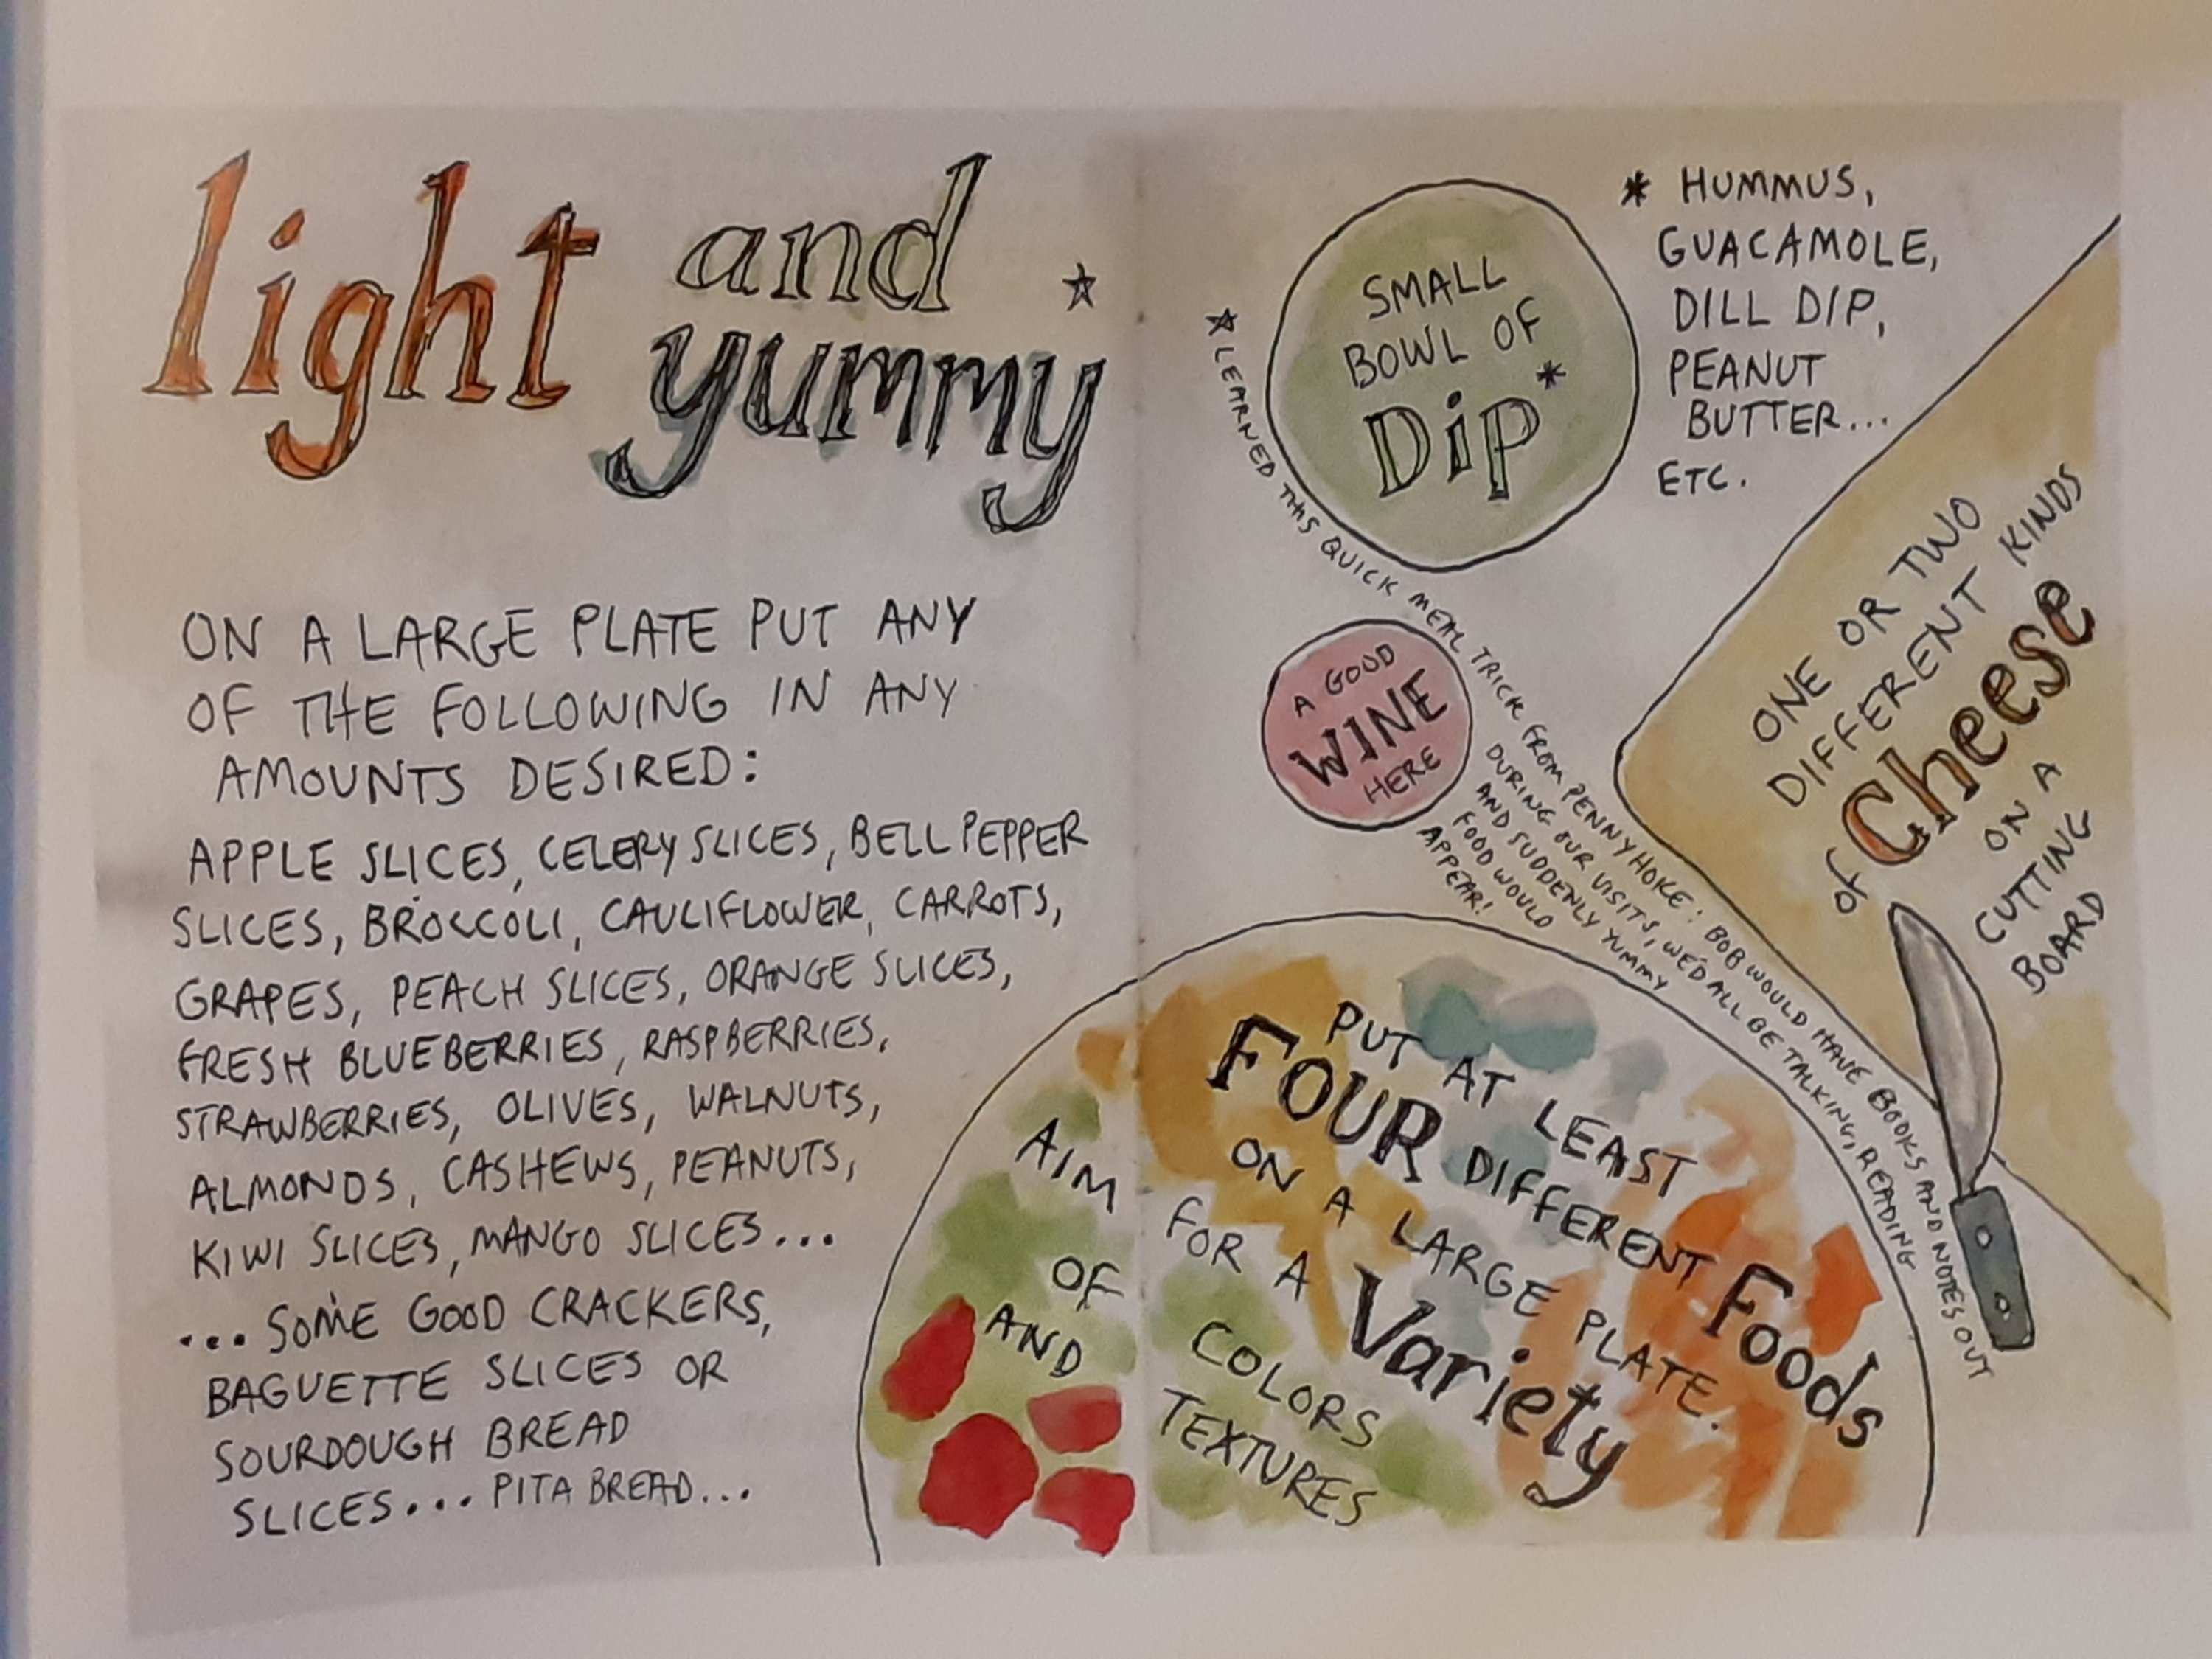 light and
yummy ☆
ON A LARGE PLATE PUT ANY
OF THE FOLLOWING IN ANY
AMOUNTS DESIRED:
APPLE SLICES, CELERY SLICES, BELL PEPPER
SLICES, BROCCOLI, CAULIFLOWER, CARROTS,
GRAPES, PEACH SLICES, ORANGE SLICES,
FRESH BLUEBERRIES, RASPBERRIES,
STRAWBERRIES, OLIVES, WALNUTS,
ALMONDS, CASHEWS, PEANUTS,
KIWI SLICES, MANGO SLICES...
...SOME GOOD CRACKERS,
BAGUETTE SLICES OR
SOURDOUGH BREAD
SLICES... PITA BREAD...
SMALL
BOWL OF
Dip*
* HUMMUS,
GUACAMOLE,
DILL DIP,
PEANUT
BUTTER...
ETC.
☆ LEARNED THIS QUICK MEAL TRICK FROM PENNY HOKE: BOB WOULD HAVE BOOKS AND NOTES OUT
DURING OUR VISITS, WE'D ALL BE TALKING, READING
AND SUDDENLY YUMMY
FOOD WOULD
APPEAR!
A GOOD
WINE
HERE
ONE OR TWO
DIFFERENT KINDS
of Cheese
ON A
CUTTING
BOARD
PUT AT LEAST
FOUR DIFFERENT Foods
ON A LARGE PLATE.
AIM FOR A Variety
OF COLORS
AND TEXTURES